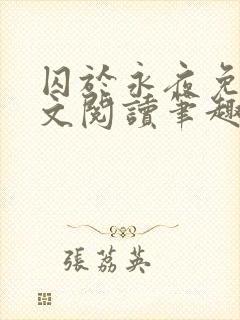 囚於永夜免
文閱讀筆趣
張荔英